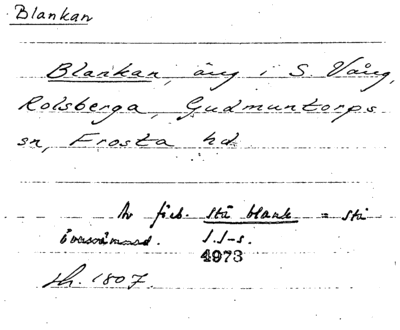 Blankan
Blankan, äng i S. Vång,
Rolsberga, Gudmuntorps
sn, Frosta hd
Av förb. stå blank = stå
översvämmad. J. J-s.
4973
Sk. 1807.